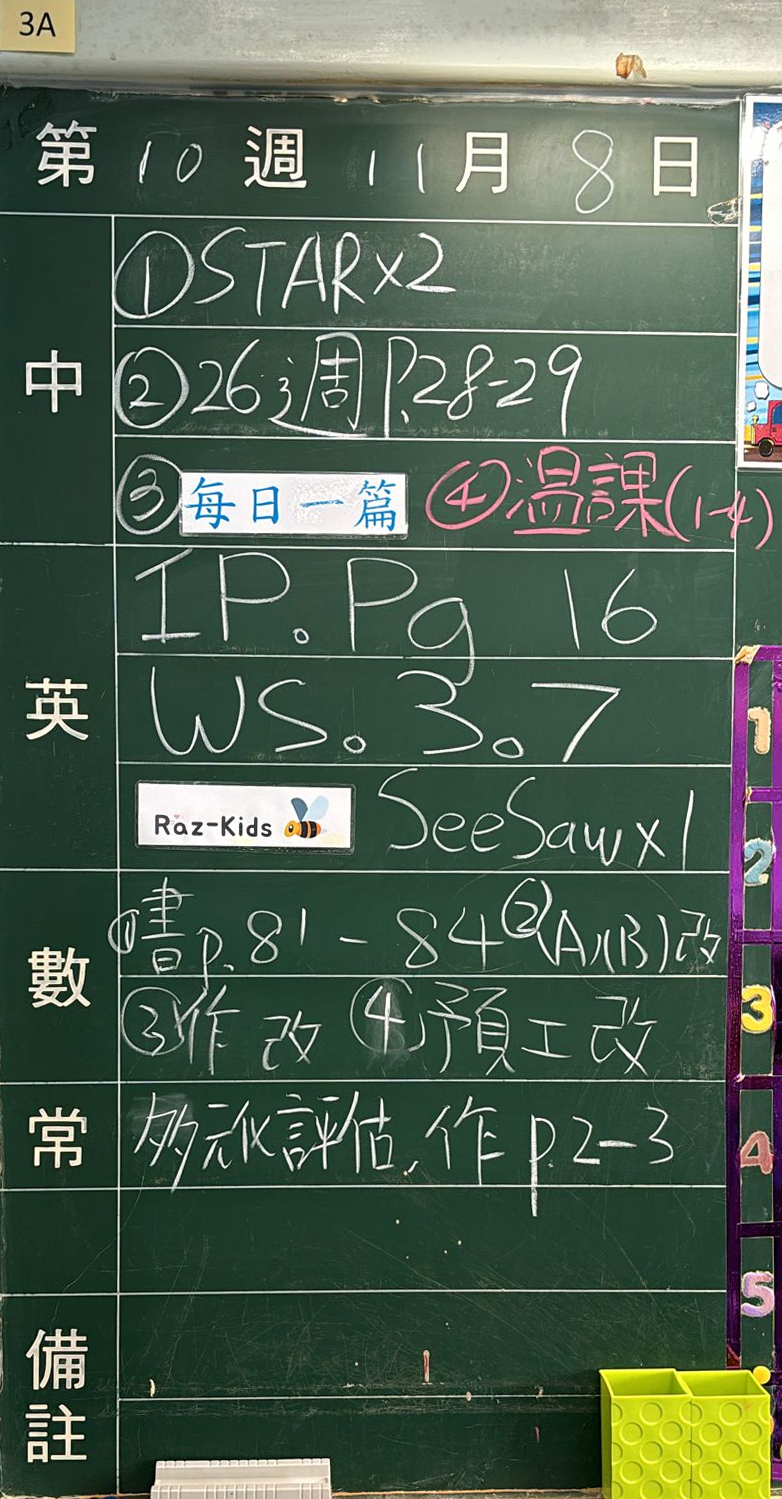 3A
第 10 週 11 月 8 日
中
①STARx2
②26週 P.28-29
③每日一篇 ④温課(1-4)
英
IP. Pg 16
WS. 3. 7
Raz-Kids SeeSaw x 1
數
①書p. 81-84 ②(A)(B)改
③作改 ④預工改
常
多元化評估, 作 p.2-3
備註
1
2
3
4
5